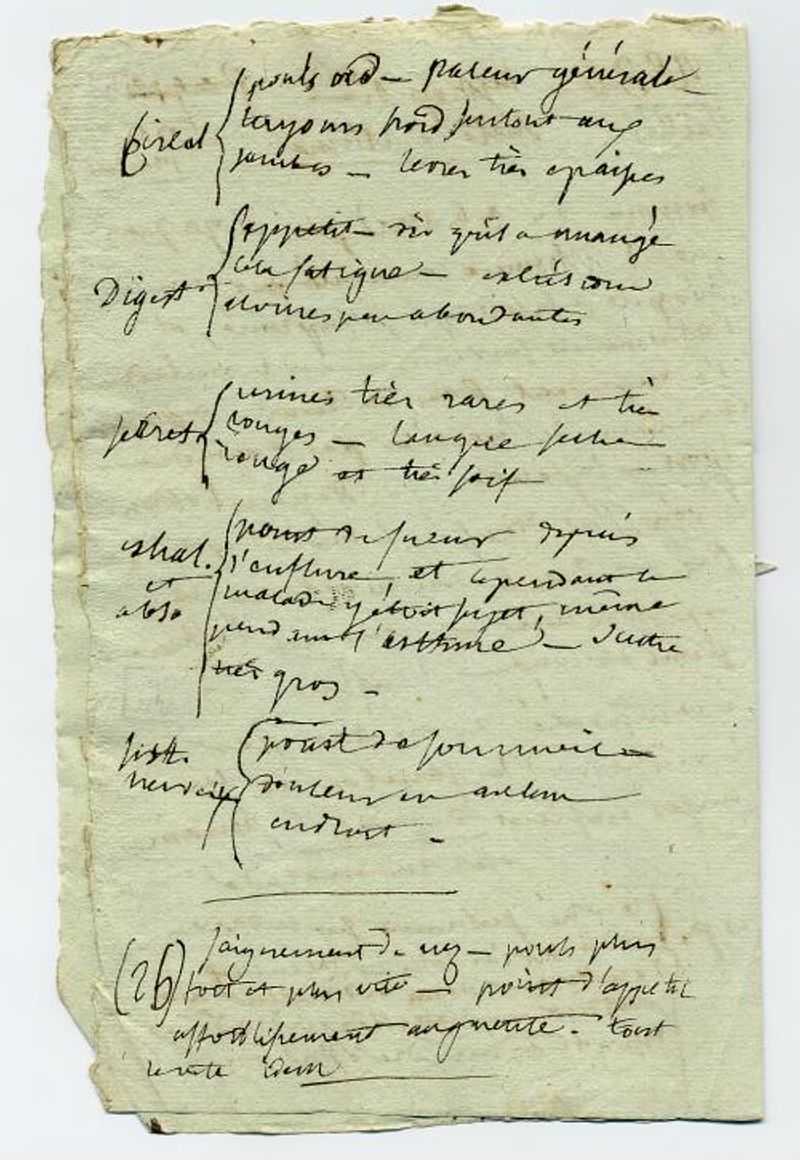 Circul
pouls ord – paleur générale –
toujours froid surtout aux
jambes – levres très epaisses
Digest
appetit – dès qu'il a mangé
cela fatigue – excrétions
alvines peu abondantes
secret
urines très rares et très
rouges – langue seche
rouge et très soif
exhal.
et
abso
point de sueur depuis
l'enflure, et cependant le
malade y étoit sujet, même
pendant l'asthme – ventre
très gros –
sist.
nerveux
point de sommeil –
douleur en aucun
endroit –
(26) saignement de nez – pouls plus
fort et plus vite – point d'appetit
affoiblissement augmente – tout
le reste idem